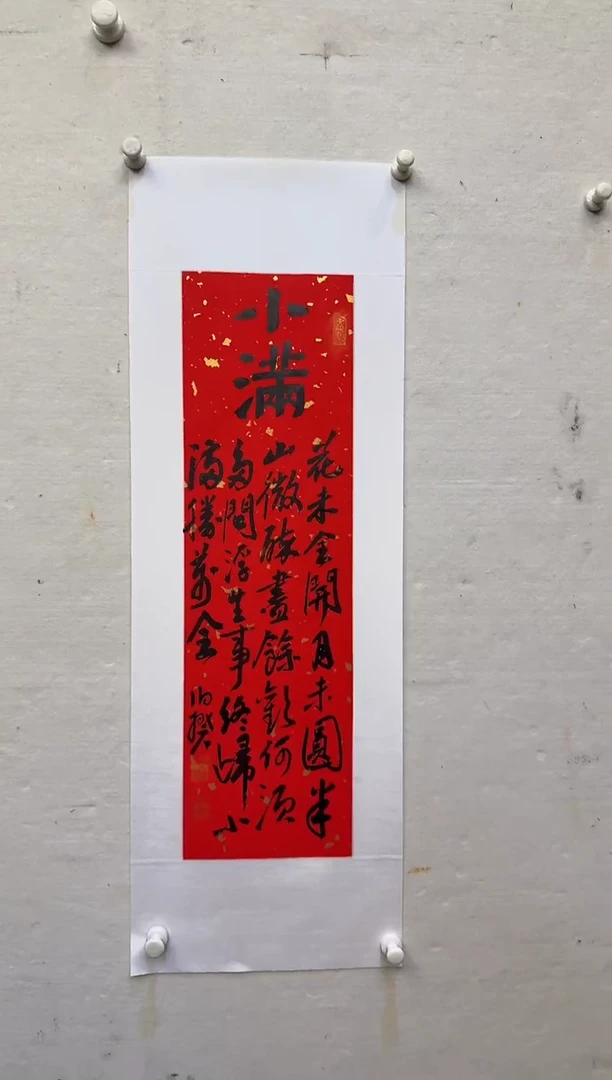 小滿
花未全開月未圓半
山微醉盡餘歡何須
多問浮生事終歸小
滿勝萬全
伯樊